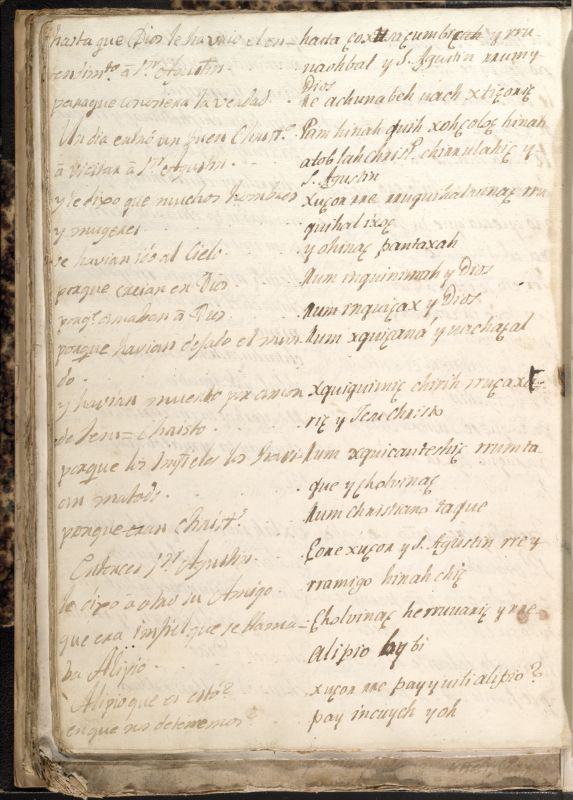 hasta que Dios le havrio el en=
tendim.to â S.n Agustin.
paraque conosiera la verdad.
Un dia entró un buen Christ.o
â visitar â S.n Agustin.
y le dixo que muchos hombres
y mugeres
se havian ido al Cielo.
porque creían en Dios.
porq.e amaban â Dios.
porque havian dejado el mun
do.
y havian muerto por amor
de Jesu=Christo.
porque los Infieles los havi-
an matado.
porque eran Christ.s
Entonces S.n Agustin.
le dixo â otro su Amigo
que era infiel que se llama=
ba Alipio.
Alipio que es esto?
en que nos detenemos?
hasta y rru-
naohbal y S. Agustin rrumy
Dios
Re achunabeh uach xticorič
Pam hinah quih xohčolač hinah
atob lah Christ.o y
S. Agustin
xučon rre rru
quihal ixoč
y ohinač pantaxah
Rum y Dios
Rum inquičax y Dios
Rum xquičana y uachačal
xquiquimič chirih
rič y Jesu Christo
Rum rrumta-
que y cholvinač
Rum christiano taque
Eore xučon y S. Agustin rre y
rramigo hinah chič
Cholvinač y rre
alipio bi
xučon rre pay y uili alipio?
pay incuych yoh